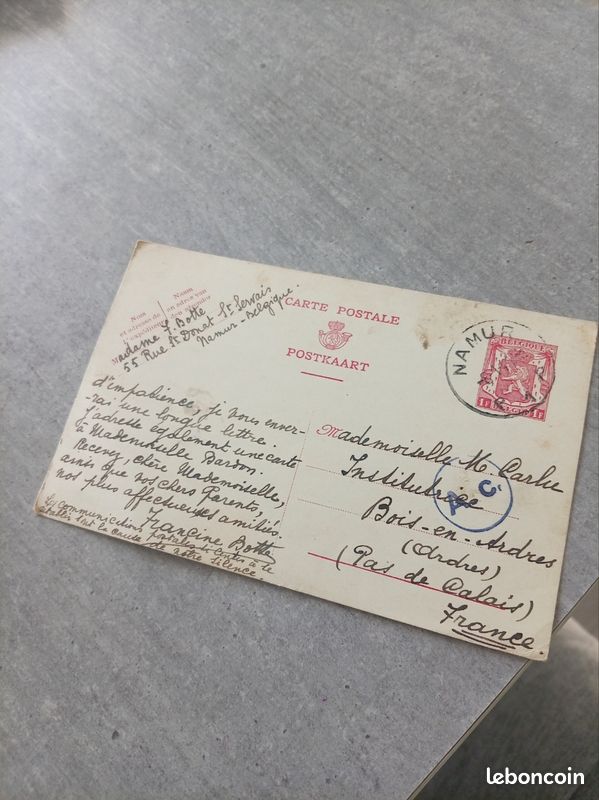 Nom
et adresse de
l'expéditeur
Naam
en adres van
den afzender
Madame F. Botte
55 Rue St Donat St Servais
Namur - Belgique.
CARTE POSTALE
POSTKAART
NAMUR
BELGIQUE
1F
1F
BELGIE
d'impatience, je vous enver-
rai une longue lettre.
J'adresse également une carte
à Mademoiselle Dardon.
Recevez, chère Mademoiselle,
ainsi que vos chers Parents,
nos plus affectueuses amitiés.
Francine Botte
Les communications postales
sont la cause
de notre silence.
Mademoiselle M. Carlu
Institutrice
Bois-en-Ardres
(Ardres)
(Pas de Calais)
France
A c
leboncoin